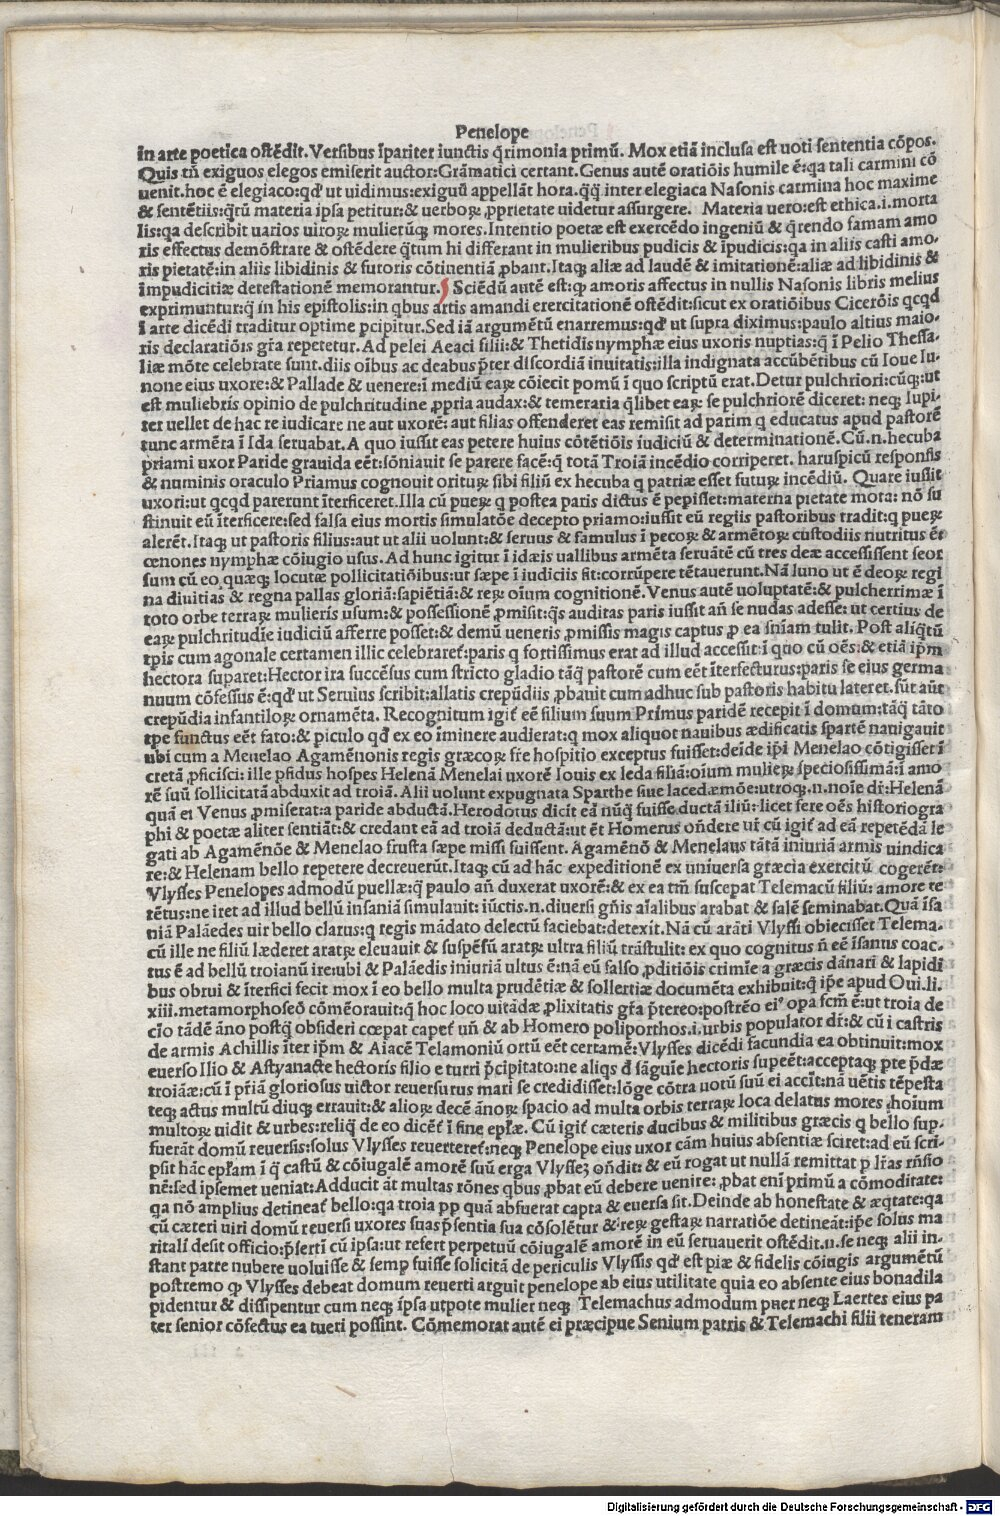 Penelope
in arte poetica ostēdit. Versibus īpariter iunctis q̄rimonia primū. Mox etiā inclusa est uoti sententia cōpos.
Quis tn̄ exiguos elegos emiserit auctor: Grāmatici certant. Genus autē oratiōis humile ē: qa tali carmini cō
uenit. hoc ē elegiaco: qđ ut uidimus: exiguū appellāt hora. q̄q̄ inter elegiaca Nasonis carmina hoc maxime
& sentētiis: q̄rū materia ipsa petitur: & uerboꝝ ꝓprietate uidetur assurgere. Materia uero: est ethica .i. morta
lis: qa describit uarios uiroꝝ mulierūqꝫ mores. Intentio poetæ est exercēdo ingeniū & q̄rendo famam amo
ris effectus demōstrare & ostēdere q̄tum hi differant in mulieribus pudicis & īpudicis: qa in aliis casti amo-
ris pietatē: in aliis libidinis & furoris cōtinentiā ꝓbant. Itaqꝫ aliæ ad laudē & imitationē: aliæ ad libidinis &
impudicitiæ detestationē memorantur. Sciēdū autē est: qꝫ amoris affectus in nullis Nasonis libris melius
exprimuntur: q̄ in his epistolis: in qbus artis amandi exercitationē ostēdit: sicut ex oratiōibus Cicerōis qcqd
ī arte dicēdi traditur optime ꝑcipitur. Sed iā argumētū enarremus: qđ ut supra diximus: paulo altius maio-
ris declaratiōis gr̄a repetetur. Ad pelei Aeaci filii: & Thetidis nymphæ eius uxoris nuptias: q̄ ī Pelio Thessa-
liæ mōte celebrate sunt. diis oībus ac deabus p̄ter discordiā inuitatis: illa indignata accūbētibus cū Ioue Iu-
none eius uxore: & Pallade & uenere: ī mediū eaꝝ cōiecit pomū ī quo scriptū erat. Detur pulchriori: cūqꝫ: ut
est muliebris opinio de pulchritudine ꝓpria audax: & temeraria q̄libet eaꝝ se pulchriorē diceret: neqꝫ Iupi-
ter uellet de hac re iudicare ne aut uxorē: aut filias offenderet eas remisit ad parim q educatus apud pastorē
tunc armēta ī Ida seruabat. A quo iussit eas petere huius cōtētiōis iudiciū & determinationē. Cū .n. hecuba
priami uxor Paride grauida eēt: sōniauit se parere facē: q̄ totā Troiā incēdio corriperet. haruspicū responsis
& numinis oraculo Priamus cognouit orituꝝ sibi filiū ex hecuba q patriæ esset futuꝝ incēdiū. Quare iussit
uxori: ut qcqd parerunt īterficeret. Illa cū pueꝝ q postea paris dictus ē pepisset: materna pietate mota: nō su
stinuit eū īterficere: sed falsa eius mortis simulatōe decepto priamo: iussit eū regiis pastoribus tradit: q pueꝝ
alerēt. Itaqꝫ ut pastoris filius: aut ut alii uolunt: & seruus & famulus ī pecoꝝ & armētoꝝ custodiis nutritus ēt
œnones nymphæ cōiugio usus. Ad hunc igitur ī idæis uallibus armēta seruātē cū tres deæ accessissent seor
sum cū eo quæqꝫ locutæ pollicitatiōibus: ut sæpe ī iudiciis fit: corrūpere tētauerunt. Nā Iuno ut ē deoꝝ regi
na diuitias & regna pallas gloriā: sapiētiā: & reꝝ oīum cognitionē. Venus autē uoluptatē: & pulcherrimæ ī
toto orbe terraꝝ mulieris usum: & possessionē ꝓmisit: qs auditas paris iussit an̄ se nudas adesse: ut certius de
eaꝝ pulchritudīe iudiciū afferre posset: & demū ueneris ꝓmissis magis captus ꝓ ea sn̄iam tulit. Post aliq̄tū
tp̄is cum agonale certamen illic celebraret: paris q fortissimus erat ad illud accessit: ī quo cū oēs: & etiā ip̄m
hectora suparet: Hector ira succēsus cum stricto gladio tāq̄ pastorē cum eēt īterfecturus: paris se eius germa
nuum cōfessus ē: qđ ut Seruius scribit: allatis crepūdiis ꝓbauit cum adhuc sub pastoris habitu lateret. sūt aūt
crepūdia infantiloꝝ ornamēta. Recognitum igit̄ eē filium suum Primus paridē recepit ī domum: tāq̄ tāto
tpe functus eēt fato: & piculo qđ ex eo īminere audierat: q mox aliquot nauibus ædificatis spartē nauigauit
ubi cum a Menelao Agamēnonis regis græcoꝝ fr̄e hospitio exceptus fuisset: deīde ip̄i Menelao cōtigisset ī
cretā ꝓficisci: ille pfidus hospes Helenā Menelai uxorē Iouis ex leda filiā: oīum mulieꝝ speciosissimā: ī amo
rē suū sollicitatā abduxit ad troiā. Alii uolunt expugnata Sparthe siue lacedæmōe: utroqꝫ .n. noīe dr̄: Helenā
quā ei Venus ꝓmiserat: a paride abductā. Herodotus dicit eā nūq̄ fuisse ductā iliū: licet fere oēs historiogra
phi & poetæ aliter sentiāt: & credant eā ad troiā deductā: ut ēt Homerus on̄dere ur̄ cū igit̄ ad eā repetēdā le
gati ab Agamēnōe & Menelao frusta sæpe missi fuissent. Agamēnō & Menelaus tātā iniuriā armis uindica
re: & Helenam bello repetere decreuerūt. Itaqꝫ cū ad hāc expeditionē ex uniuersa græcia exercitū cogerēt:
Vlysses Penelopes admodū puellæ: q̄ paulo an̄ duxerat uxorē: & ex ea tm̄ suscepat Telemacū filiū: amore te
tētus: ne iret ad illud bellū insaniā simulauit: iūctis .n. diuersi gn̄is aīalibus arabat & salē seminabat. Quā īsa
niā Palāedes uir bello clarus: q regis mādato delectū faciebat: detexit. Nā cū arāti Vlyssi obiecisset Telema-
cū ille ne filiū læderet aratꝝ eleuauit & suspēsū aratꝝ ultra filiū trāstulit: ex quo cognitus n̄ eē īsanus coac-
tus ē ad bellū troianū ire: ubi & Palāedis iniuriā ultus ē: nā eū falso ꝓditiōis crimīe a græcis dānari & lapidi
bus obrui & īterfici fecit mox ī eo bello multa prudētiæ & sollertiæ documēta exhibuit: q̄ ip̄e apud Oui. li.
xiii. metamorphoseō cōmēorauit: q̄ hoc loco uitādæ ꝓlixitatis gr̄a p̄tereo: postrēo ei⁹ opa fcm̄ ē: ut troia de
cīo tādē āno postq̄ obsideri cœpat capet̄ un̄ & ab Homero poliporthos .i. urbis populator dr̄: & cū ī castris
de armis Achillis īter ip̄m & Aiacē Telamoniū ortū eēt certamē: Vlysses dicēdi facundia ea obtinuit: mox
euerso Ilio & Astyanacte hectoris filio e turri p̄cipitato: ne aliqs đ sāguīe hectoris supeēt: acceptaqꝫ pte p̄dæ
troiāæ: cū ī pr̄iā gloriosus uictor reuersurus mari se credidisset: lōge cōtra uotū suū ei accīt: nā uētis tēpesta
teqꝫ actus multū diuqꝫ errauit: & alioꝝ decē ānoꝝ spacio ad multa orbis terraꝝ loca delatus mores hoīum
multoꝝ uidit & urbes: reliq̄ de eo dicēt̄ ī fine ep̄læ. Cū igit̄ cæteris ducibus & militibus græcis q bello sup-
fuerāt domū reuersis: solus Vlysses reuerteret̄: neqꝫ Penelope eius uxor cām huius absentiæ sciret: ad eū scri-
psit hāc ep̄lam ī q̄ castū & cōiugalē amorē suū erga Vlysseꝫ on̄dit: & eū rogat ut nullā remittat p lr̄as rn̄sio
nē: sed ipsemet ueniat: Adducit āt multas rōnes qbus ꝓbat eū debere uenire: ꝓbat enī primū a cōmoditate:
qa nō amplius detineat̄ bello: qa troia pp quā absuerat capta & euersa sit. Deinde ab honestate & æqtate: qa
cū cæteri uiri domū reuersi uxores suas p̄sentia sua cōsolētur & reꝝ gestaꝝ narratiōe detineāt: ip̄e solus ma
ritali desit officio: p̄sertī cū ipsa: ut refert perpetuū cōiugalē amorē in eū seruauerit ostēdit .n. se neqꝫ alii in-
stant patre nubere uoluisse & semp fuisse solicitā de periculis Vlyssis qđ est piæ & fidelis cōiugis argumētū
postremo qꝫ Vlysses debeat domum reuerti arguit penelope ab eius utilitate quia eo absente eius bona dila
pidentur & dissipentur cum neqꝫ ipsa utpote mulier neqꝫ Telemachus admodum puer neqꝫ Laertes eius pa
ter senior cōfectus ea tueri possint. Cōmemorat autē ei præcipue Senium patris & Telemachi filii teneram
Digitalisierung gefördert durch die Deutsche Forschungsgemeinschaft - DFG